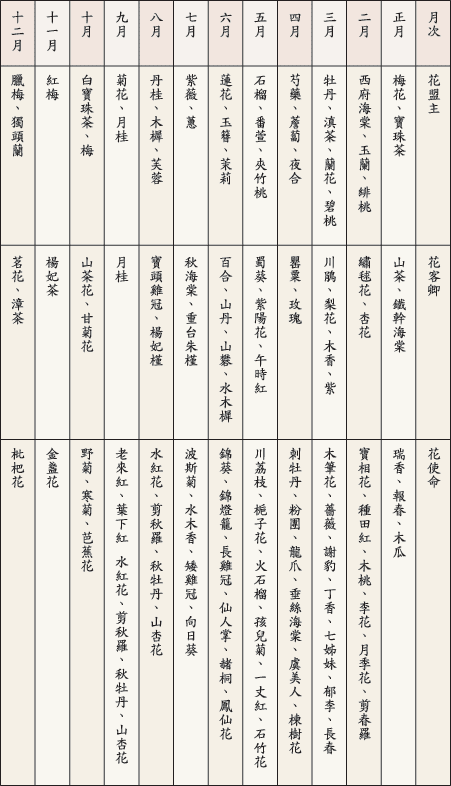 月次
花盟主
花客卿
花使命
正月
梅花、寶珠茶
山茶、鐵幹海棠
瑞香、報春、木瓜
二月
西府海棠、玉蘭、緋桃
繡毬花、杏花
寶相花、種田紅、木桃、李花、月季花、剪春羅
三月
牡丹、滇茶、蘭花、碧桃
川鵑、梨花、木香、紫
木筆花、薔薇、謝豹、丁香、七姊妹、郁李、長春
四月
芍藥、薝蔔、夜合
罌粟、玫瑰
刺牡丹、粉團、龍爪、垂絲海棠、虞美人、楝樹花
五月
石榴、番萱、夾竹桃
蜀葵、紫陽花、午時紅
川荔枝、梔子花、火石榴、孩兒菊、一丈紅、石竹花
六月
蓮花、玉簪、茉莉
百合、山丹、山礬、水木樨
錦葵、錦燈籠、長雞冠、仙人掌、赬桐、鳳仙花
七月
紫薇、蕙
秋海棠、重台朱槿
波斯菊、水木香、矮雞冠、向日葵
八月
丹桂、木樨、芙蓉
寶頭雞冠、楊妃槿
水紅花、剪秋羅、秋牡丹、山杏花
九月
菊花、月桂
月桂
老來紅、葉下紅 水紅花、剪秋羅、秋牡丹、山杏花
十月
白寶珠茶、梅
山茶花、甘菊花
野菊、寒菊、芭蕉花
十一月
紅梅
楊妃茶
金盞花
十二月
臘梅、獨頭蘭
茗花、漳茶
枇杷花